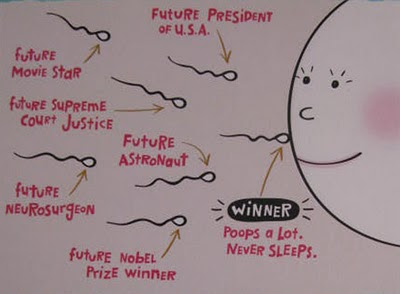 FUTURE PRESIDENT
OF U.S.A.
FUTURE
MOVIE STAR
FUTURE SUPREME
COURT JUSTICE
FUTURE
ASTRONAUT
FUTURE
NEUROSURGEON
WINNER
POOPS A LOT.
NEVER SLEEPS.
FUTURE NOBEL
PRIZE WINNER